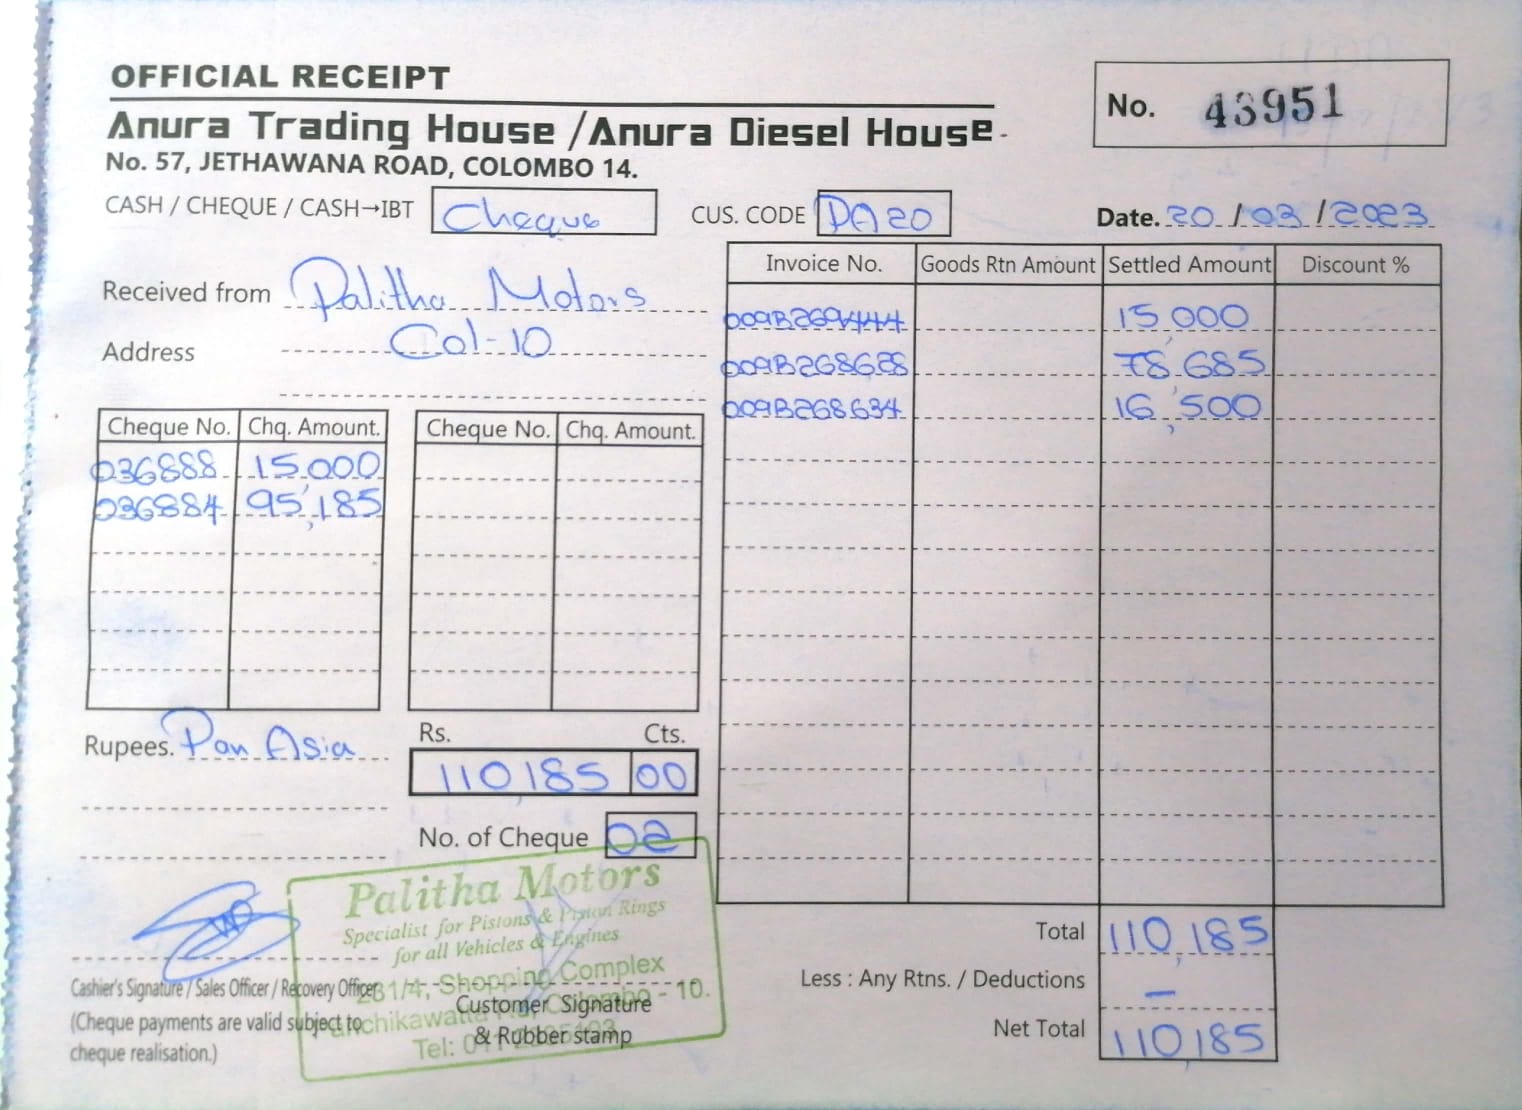 OFFICIAL RECEIPT
Anura Trading House / Anura Diesel House
No. 57, JETHAWANA ROAD, COLOMBO 14.
No. 43951
CASH / CHEQUE / CASH→IBT Cheque
CUS. CODE PA20
Date. 20 / 03 / 2023
Received from Palitha Motors
Address Col-10
Invoice No. Goods Rtn Amount Settled Amount Discount %
009B269444 15,000
009B268628 78,685
009B268634 16,500
Cheque No. Chq. Amount. Cheque No. Chq. Amount.
036888 15,000
036884 95,185
Rupees. Pan Asia
Rs. Cts.
110,185 00
No. of Cheque 02
Total 110,185
Less : Any Rtns. / Deductions –
Net Total 110,185
Cashier's Signature / Sales Officer / Recovery Officer
(Cheque payments are valid subject to
cheque realisation.)
Customer Signature
& Rubber stamp
Palitha Motors
Specialist for Pistons & Piston Rings
for all Vehicles & Engines
Shopping Complex
Colombo - 10.
Tel: